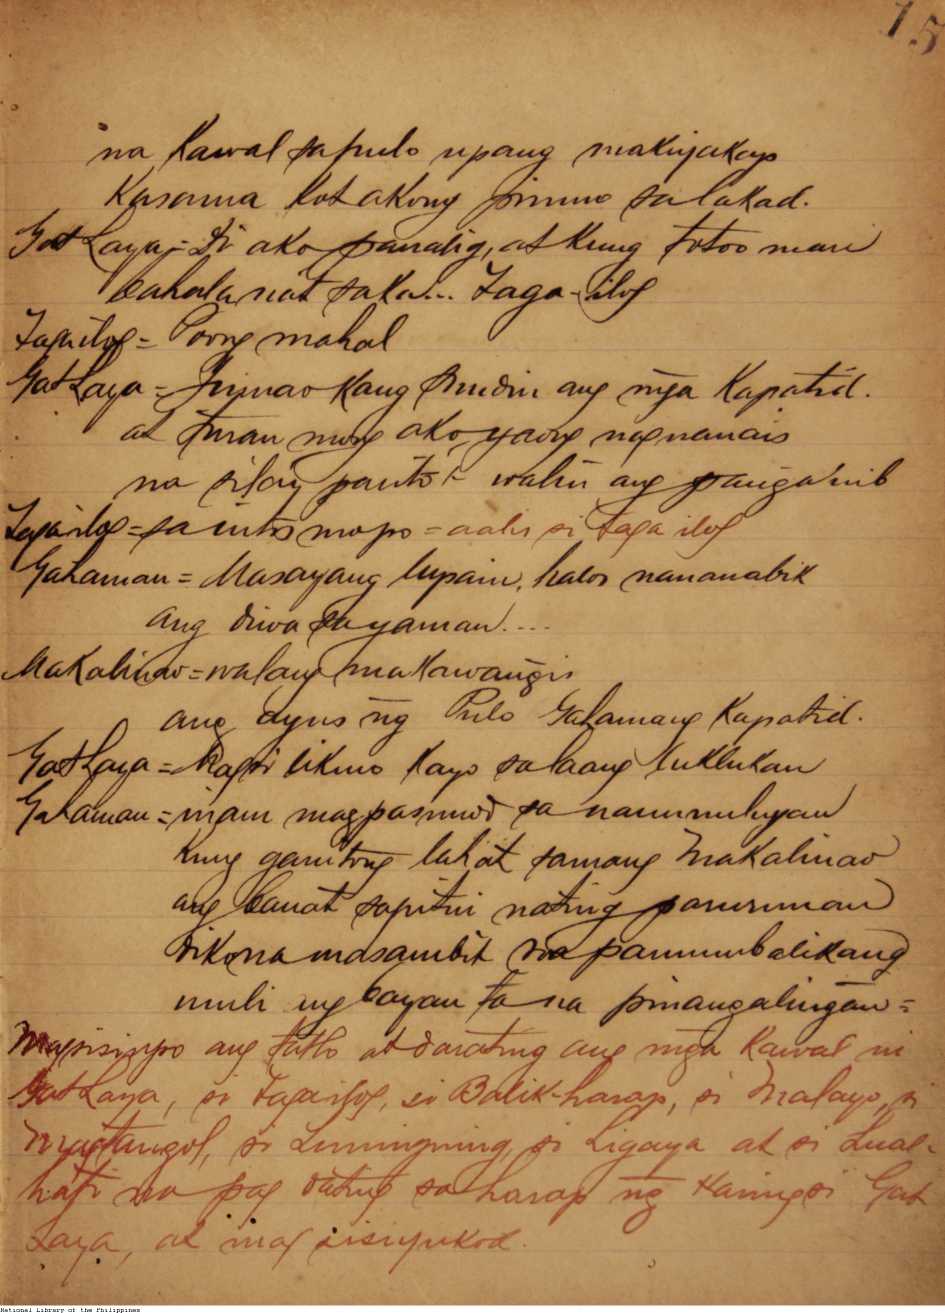 15
na kawal sa pulo upang makiyakap
Kasama kot akong pinuno sa lakad.
Gat Laya = Di ako panatig, at kung totoo man
bahala nat saka... Taga-ilog
Taga ilog = Poong mahal
Gat Laya = kang ang mga Kapatid.
at turan mong ako yaong nagnanais
na sila'y walin ang panganib
Taga ilog = sa utos mopo = aalis si Taga ilog
Galaman = Masayang lupain, halos nananabik
ang diwa sa yaman....
Makalinao = walang makawangis
ang ayus ng Pulo Galamang Kapatid.
Gat Laya = Magsi likmo kayo sa laang luklukan
Galaman = inam magpasunod sa namumuhyan
kung ganitong lahat samang Makalinao
ang banat sapitin nating
dikona masambit na panumbalikang
muli ng bayan ta na pinangalingan =
Magsisinpo ang tatlo at darating ang mga Kawal ni
Gat Laya, si Taga ilog, si Balik-harap, si Malayo, si
Magtangol, si Luningning, si Ligaya at si Lual-
hati na pag dating sa harap ng Haring si Gat
Laya, at mag sisiyukod.
National Library of the Philippines